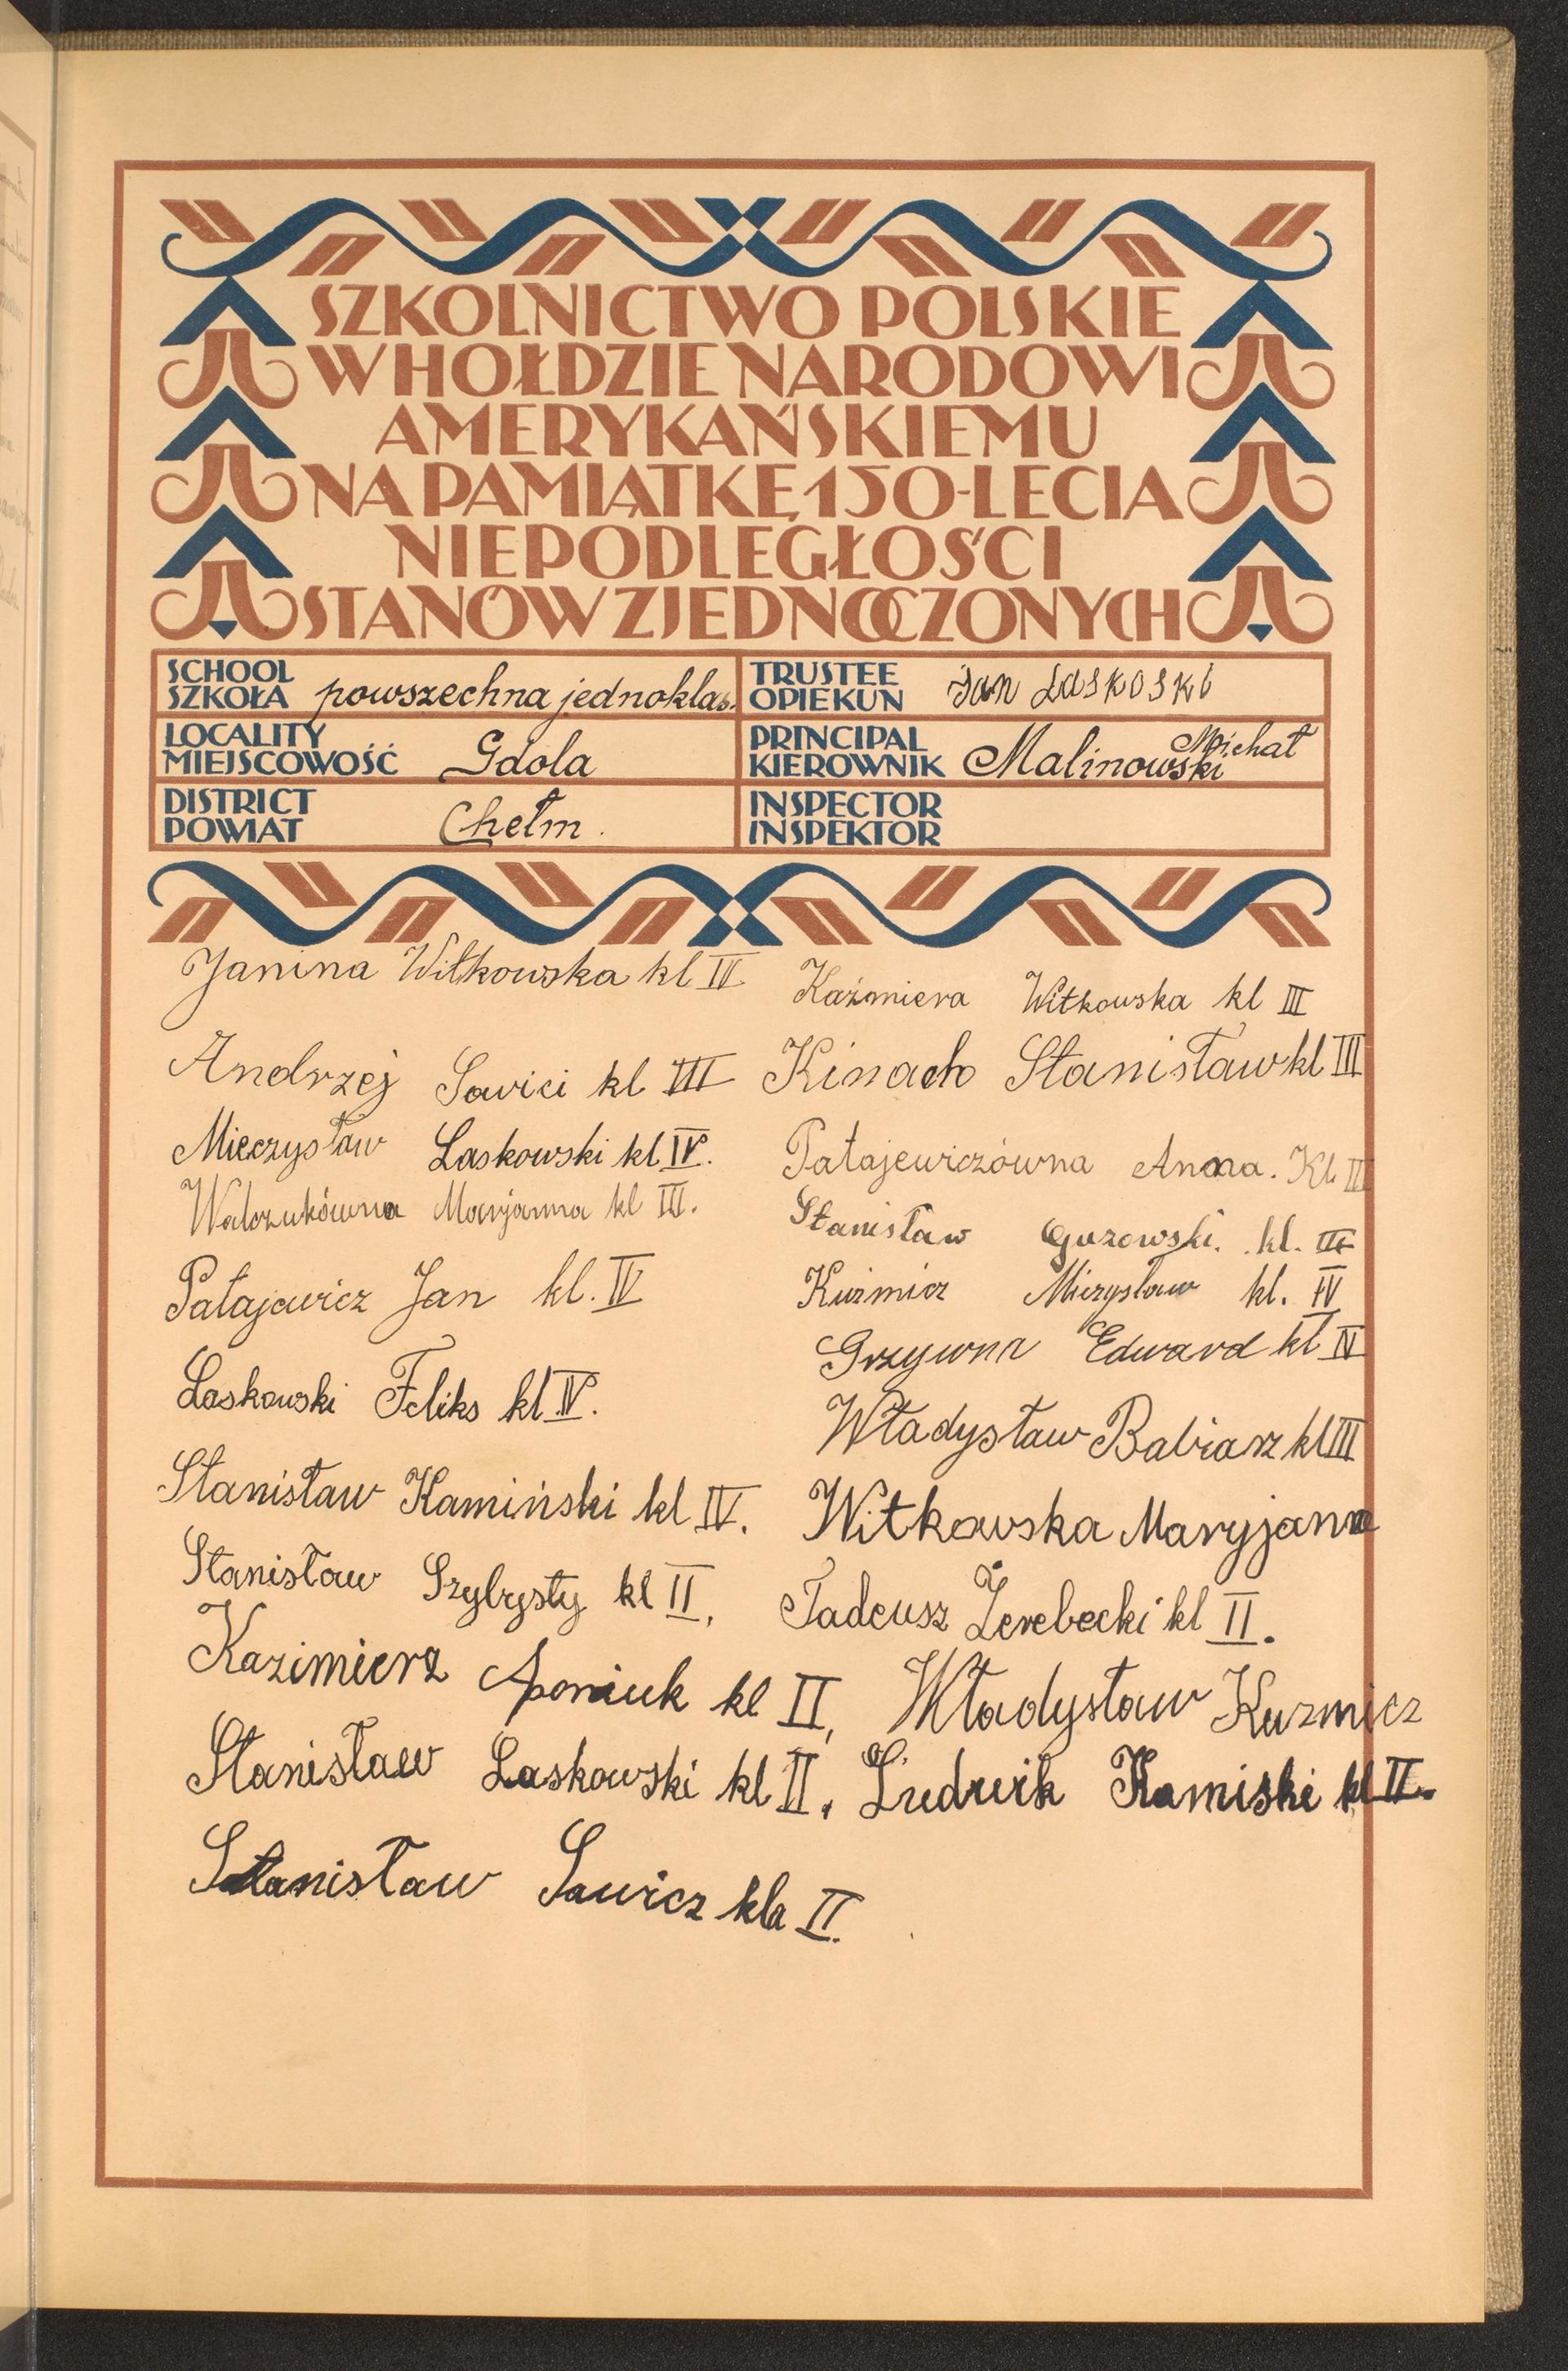 SZKOLNICTWO POLSKIE
W HOŁDZIE NARODOWI
AMERYKAŃSKIEMU
NA PAMIĄTKĘ 150-LECIA
NIEPODLEGŁOŚCI
STANÓW ZJEDNOCZONYCH
SCHOOL
SZKOŁA powszechna jednoklas.
TRUSTEE
OPIEKUN Jan Laskoski
LOCALITY
MIEJSCOWOŚĆ Gdola
PRINCIPAL
KIEROWNIK Malinowski Michał
DISTRICT
POWIAT Chełm.
INSPECTOR
INSPEKTOR
Janina Witkowska kl IV
Kaźmiera Witkowska kl III
Andrzej Sawici kl III
Kinach Stanisław kl III
Mieczysław Laskowski kl IV.
Patajewiczówna Anna. Kl. III
Walczukówna Marjanna kl III.
Stanisław Guzowski. kl. III
Patajewicz Jan kl. IV
Kuźmicz Mieczysław kl. IV
Grzywna Edward kl IV
Laskowski Feliks kl IV.
Władysław Babiarz kl III
Stanisław Kamiński kl IV.
Witkowska Maryjanna
Stanisław Szybrysty kl II,
Tadeusz Żerebecki kl II.
Kazimierz Aponiuk kl II,
Władysław Kuzmicz
Stanisław Laskowski kl II.
Ludwik Kamiski kl II.
Stanisław Sawicz kla II.